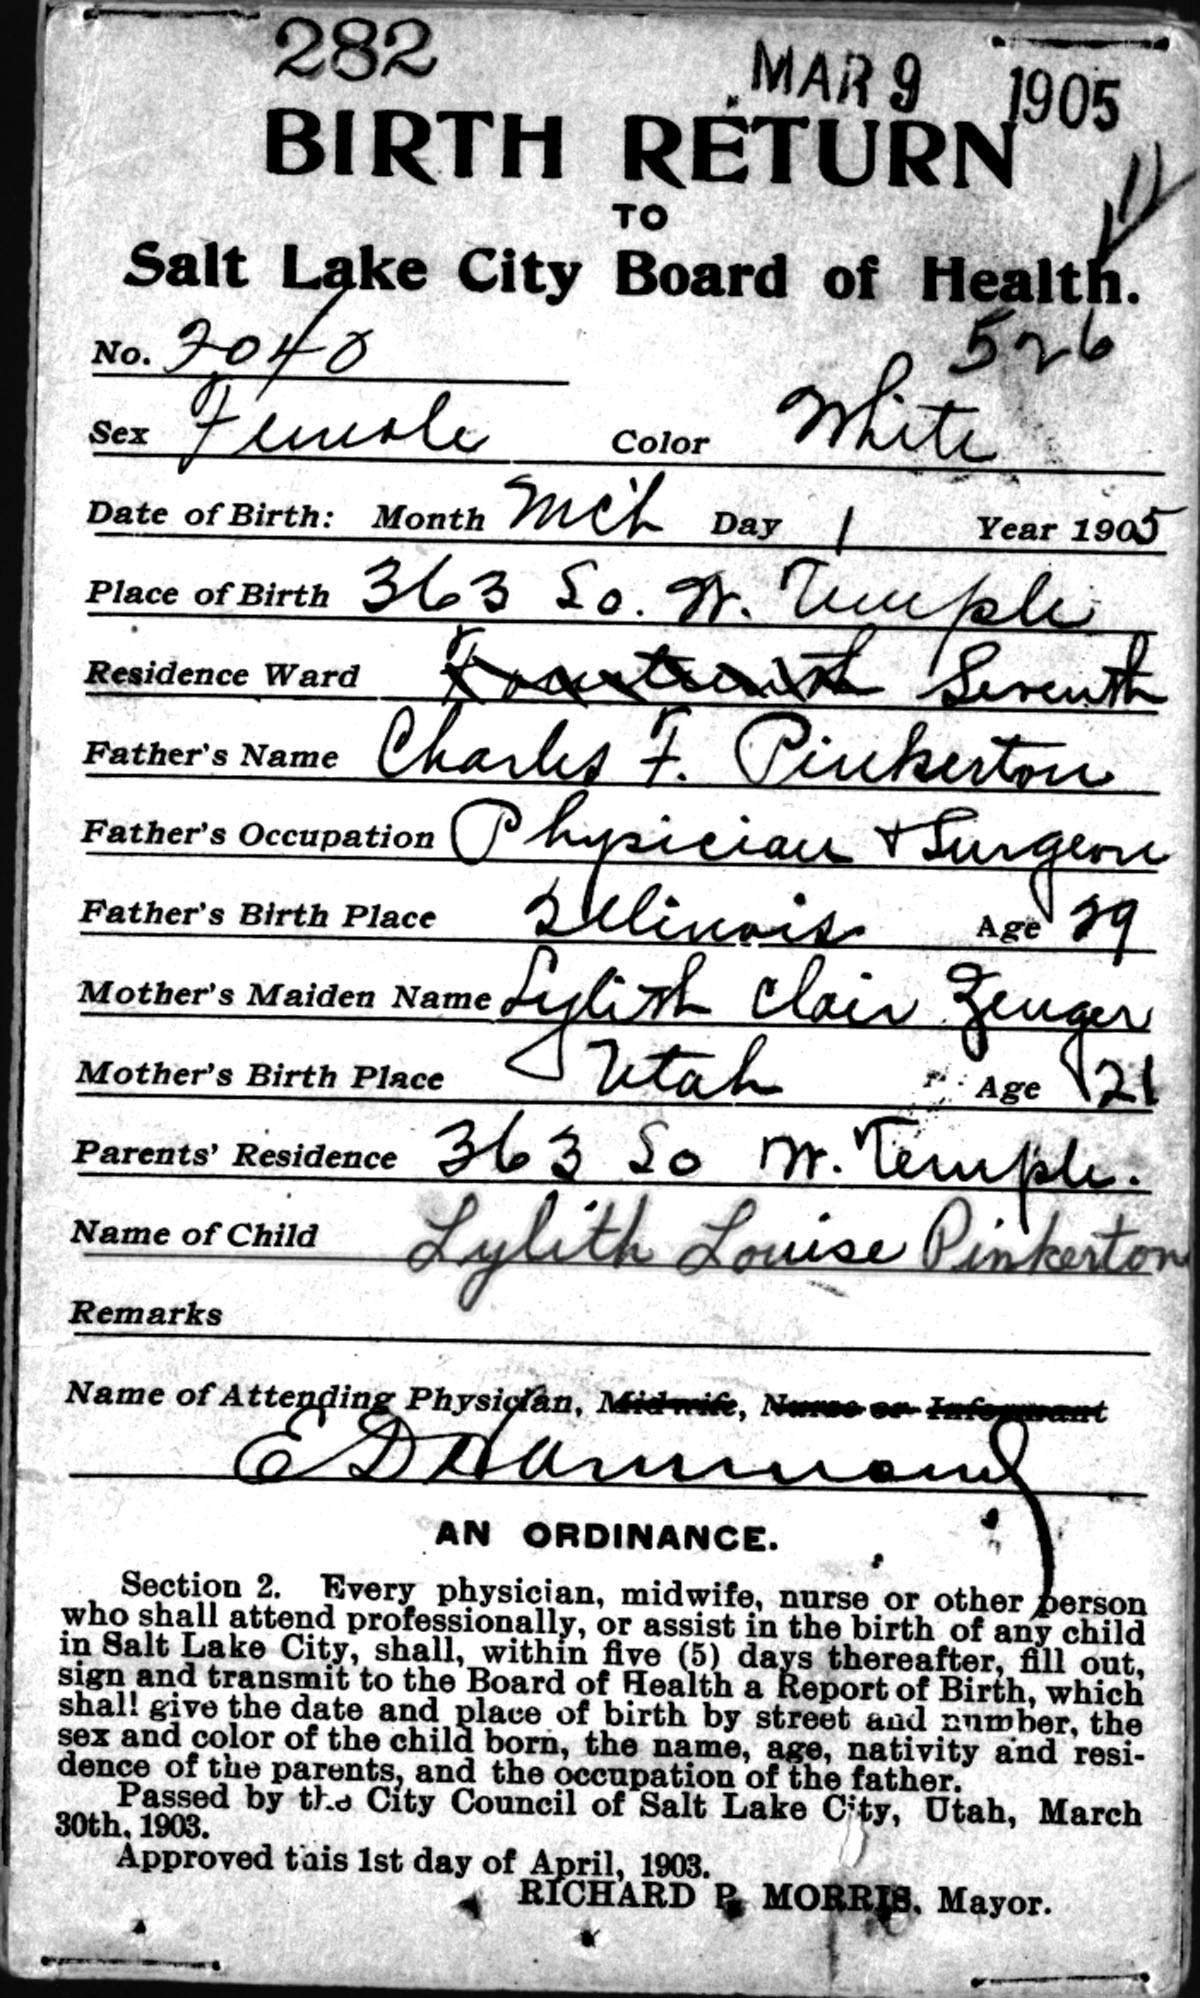 282
MAR 9 1905
BIRTH RETURN
TO
Salt Lake City Board of Health.
526
No. 2048
Sex Female Color White
Date of Birth: Month Mch Day 1 Year 1905
Place of Birth 363 So. W. Temple
Residence Ward Fourteenth Seventh
Father's Name Charles F. Pinkerton
Father's Occupation Physician & Surgeon
Father's Birth Place Illinois Age 29
Mother's Maiden Name Lylith Clair Zenger
Mother's Birth Place Utah Age 21
Parents' Residence 363 So W. Temple.
Name of Child Lylith Louise Pinkerton
Remarks
Name of Attending Physician, Midwife, Nurse or Informant
E D Hammond
AN ORDINANCE.
Section 2. Every physician, midwife, nurse or other person
who shall attend professionally, or assist in the birth of any child
in Salt Lake City, shall, within five (5) days thereafter, fill out,
sign and transmit to the Board of Health a Report of Birth, which
shall give the date and place of birth by street and number, the
sex and color of the child born, the name, age, nativity and resi-
dence of the parents, and the occupation of the father.
Passed by the City Council of Salt Lake City, Utah, March
30th, 1903.
Approved this 1st day of April, 1903.
RICHARD P. MORRIS, Mayor.